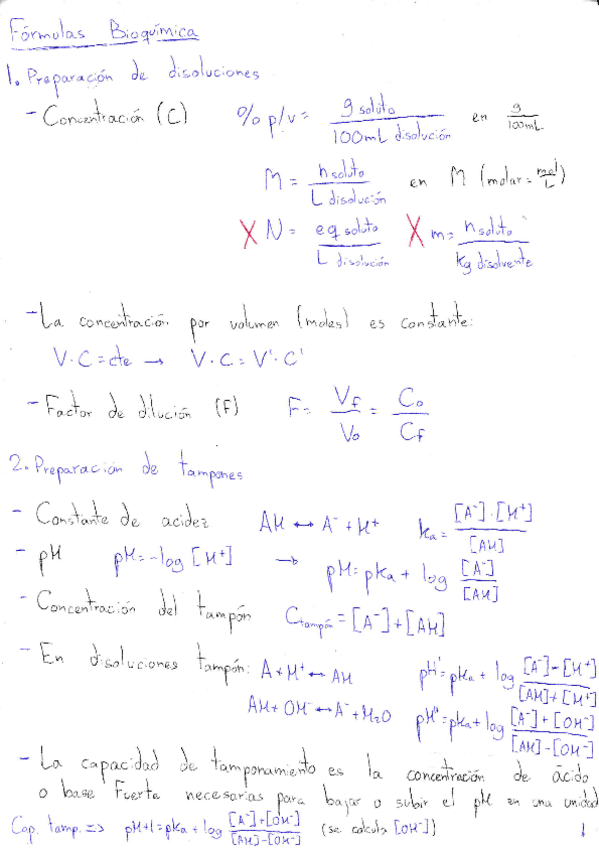 Fórmulas Bioquímica
1. Preparación de disoluciones
- Concentración (C) % p/v = g soluto / 100 mL disolución en g / 100mL
M = n soluto / L disolución en M (molar = mol / L)
X N = eq soluto / L disolución X m = n soluto / kg disolvente
- La concentración por volumen (moles) es constante:
V · C = cte → V · C = V' · C'
- Factor de dilución (F) F = Vf / Vo = Co / Cf
2. Preparación de tampones
- Constante de acidez AH ↔ A⁻ + H⁺ ka = [A⁻] · [H⁺] / [AH]
- pH pH = -log [H⁺] → pH = pka + log [A⁻] / [AH]
- Concentración del tampón Ctampón = [A⁻] + [AH]
- En disoluciones tampón: A + H⁺ ↔ AH pH' = pka + log [A⁻] - [H⁺] / [AH] + [H⁺]
AH + OH⁻ ↔ A⁻ + H₂O pH'' = pka + log [A⁻] + [OH⁻] / [AH] - [OH⁻]
- La capacidad de tamponamiento es la concentración de ácido
o base fuerte necesarias para bajar o subir el pH en una unidad
Cap. tamp. => pH+1 = pka + log [A⁻] + [OH⁻] / [AH] - [OH⁻] (se calcula [OH⁻])